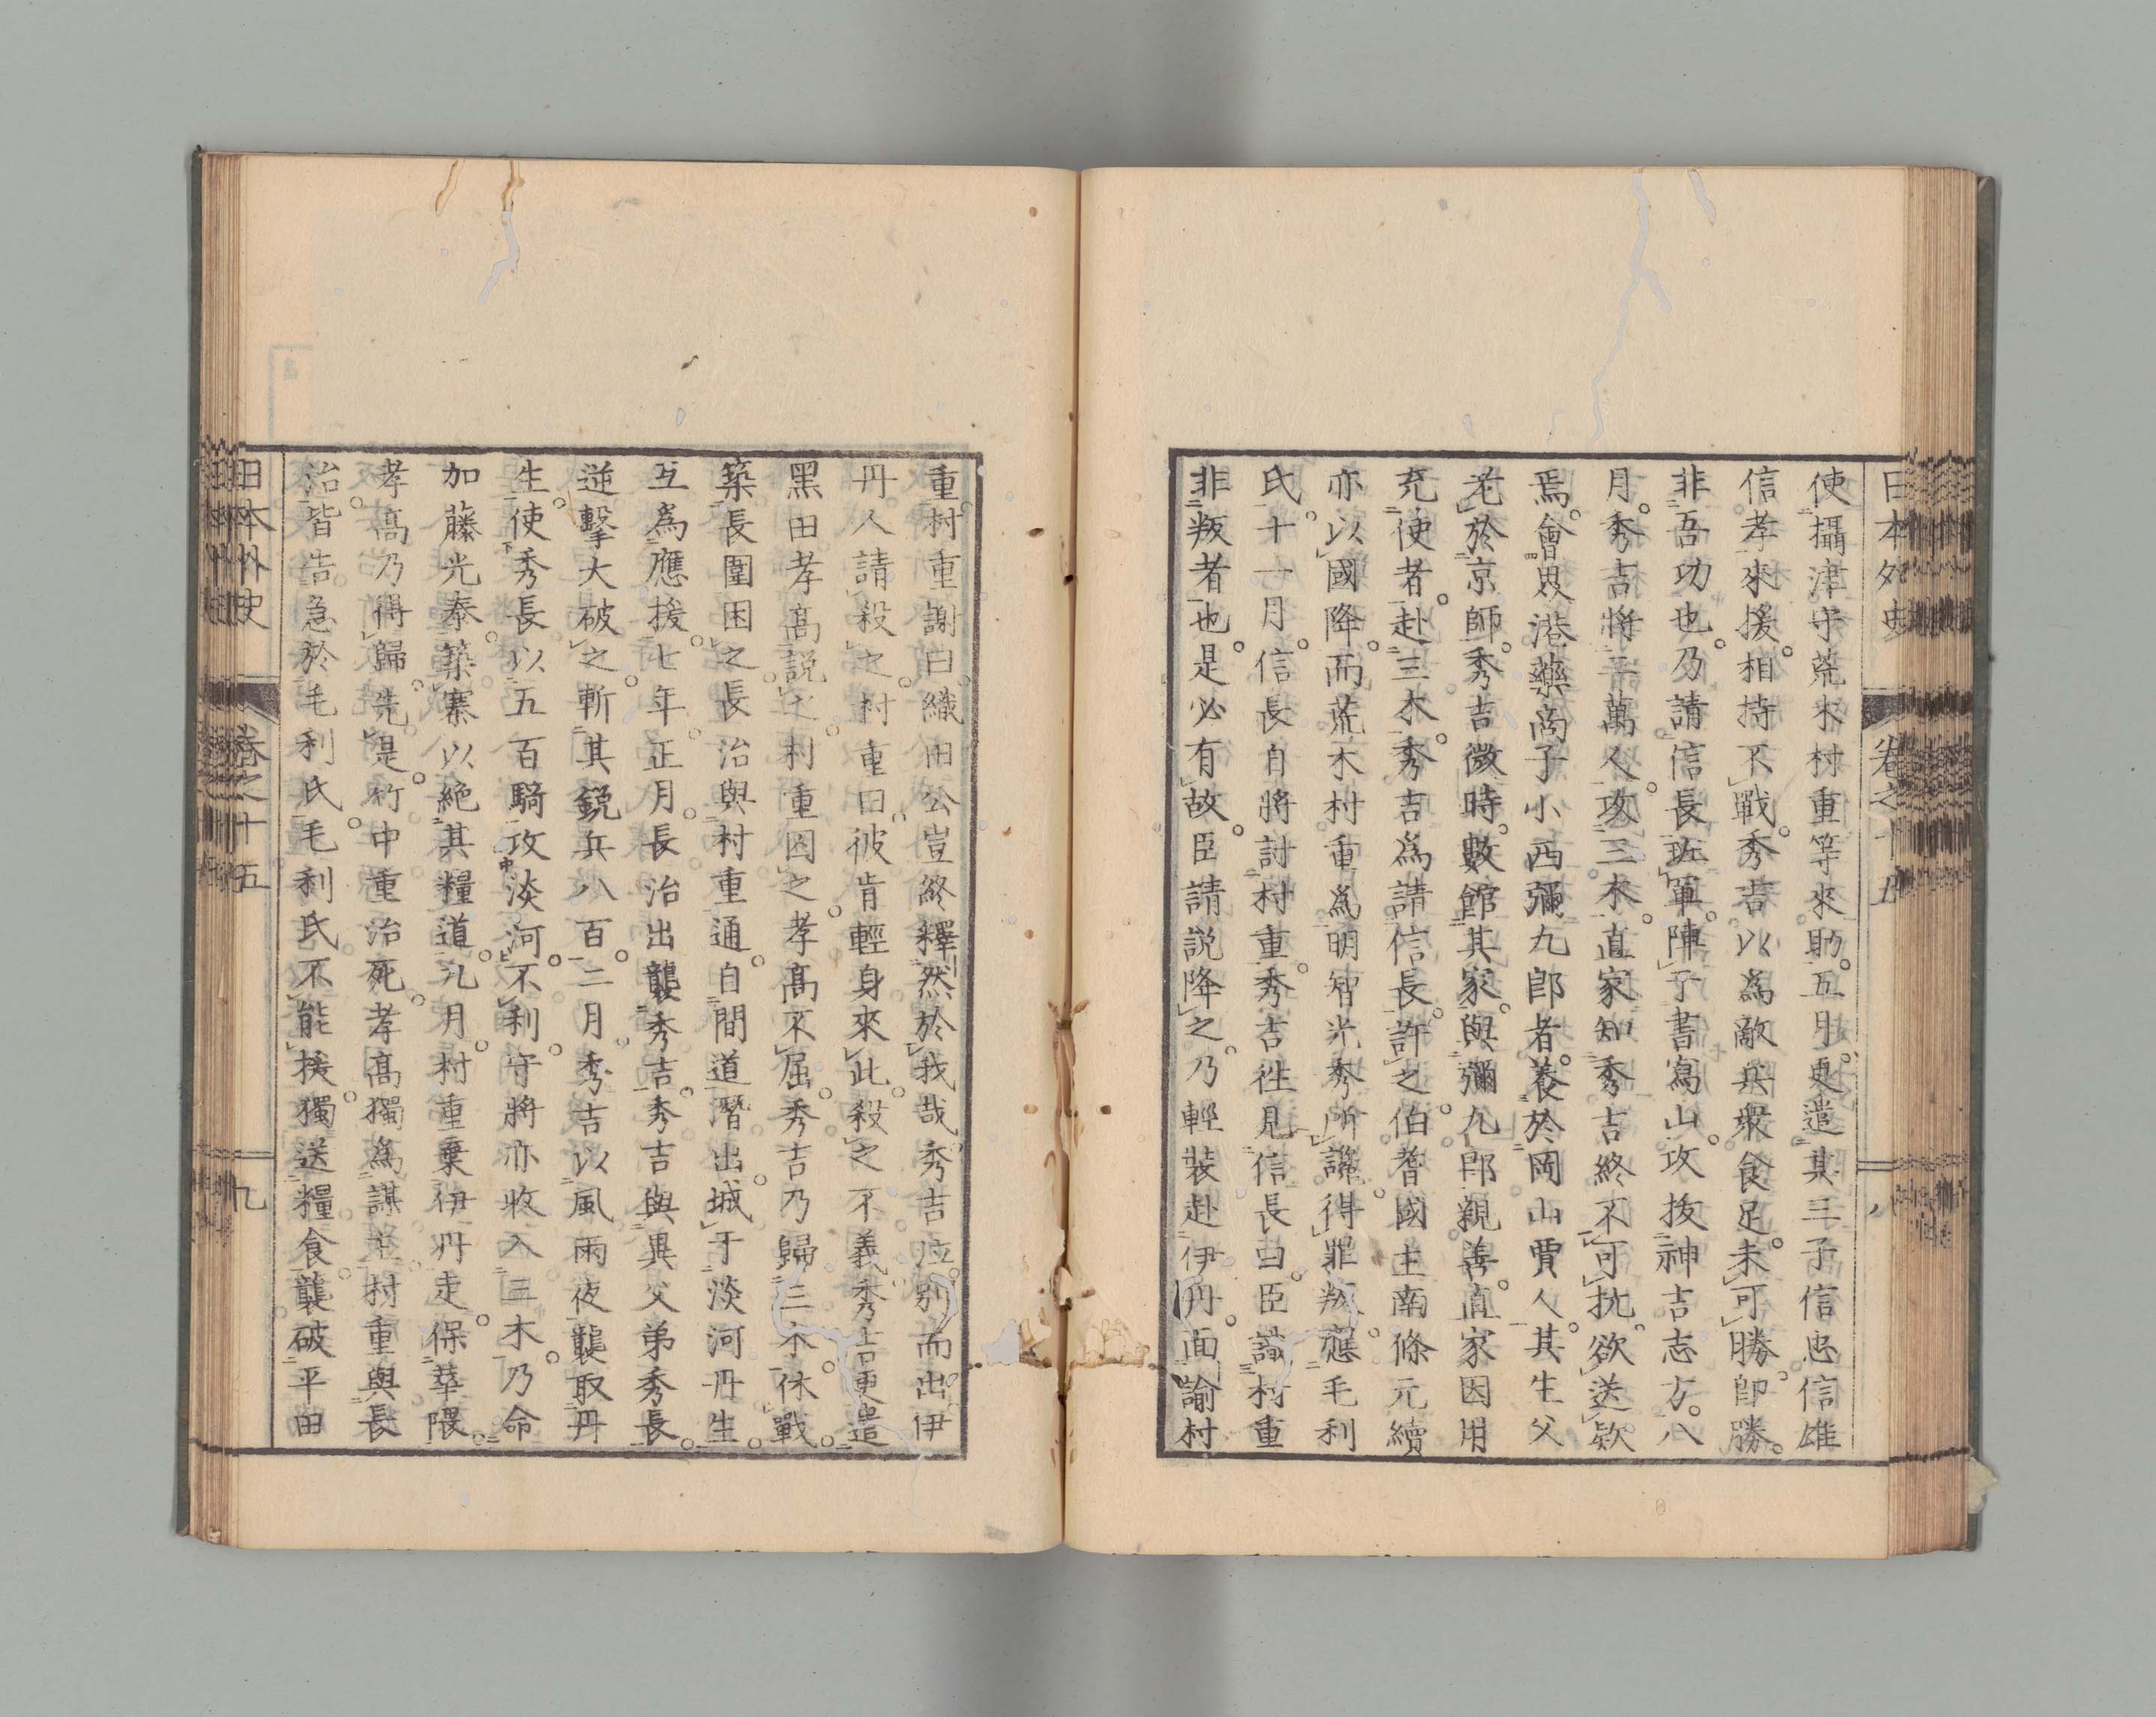 日本外史
卷之十五
八
使攝津守荒木村重等來助。五月。更遣其三子信忠信雄
信孝來援。相持不戰。秀吉以爲敵兵衆食足。未可勝。即勝。
非吾功也。乃請信長班軍。陣于書寫山。攻拔神吉志方。八
月。秀吉將二萬人。攻三木。直家知秀吉終不可抗。欲送欵
焉。會畏港藥商子小西彌九郎者。養於岡山賈人。其生父
老於京師。秀吉微時。數館其家。與彌九郎親善。直家因用
充使者。赴三木。秀吉爲請信長。許之。伯耆國主南條元續
亦以國降。而荒木村重爲明智光秀所讒。得罪叛應毛利
氏。十一月。信長自將討村重。秀吉往見信長曰。臣識村重
非叛者也。是必有故。臣請説降之。乃輕裝赴伊丹。面諭村
重。村重謝曰。織田公豈終釋然於我哉。秀吉泣別而出。伊
丹人請殺之。村重曰。彼肯輕身來此。殺之不義。秀吉更遣
黑田孝高説之。村重囚之。孝高不屈。秀吉乃歸三木。休戰。
築長圍困之。長治與村重通。自間道潛出城。于淡河丹生。
互爲應援。七年。正月。長治出襲秀吉。秀吉與異父弟秀長。
逆擊大破之。斬其鋭兵八百。二月。秀吉以風雨夜襲取丹
生。使秀長以五百騎攻淡河。不利。守將亦收入三木。乃命
加藤光泰。築寨以絶其糧道。九月。村重棄伊丹。走保華隈。
孝高乃得歸。先是。竹中重治死。孝高獨爲謀主。村重與長
治。皆告急於毛利氏。毛利氏不能援。獨送糧食。襲破平田
日本外史
卷之十五
九